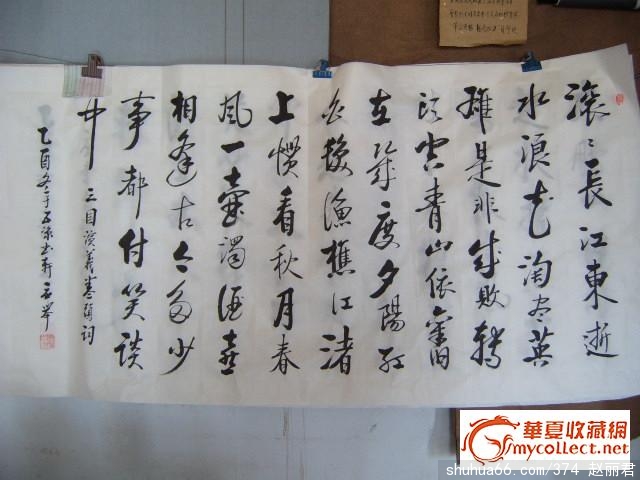 滚々長江東逝
水浪花淘尽英
雄是非成敗轉
头空青山依舊
在幾度夕陽红
白髮漁樵江渚
上慣看秋月春
風一壺濁酒喜
相逢古今多少
事都付笑談
中
三国演義卷首词
乙酉冬于
華夏收藏網
mycollect.net
shuhua66.com/374 赵丽君